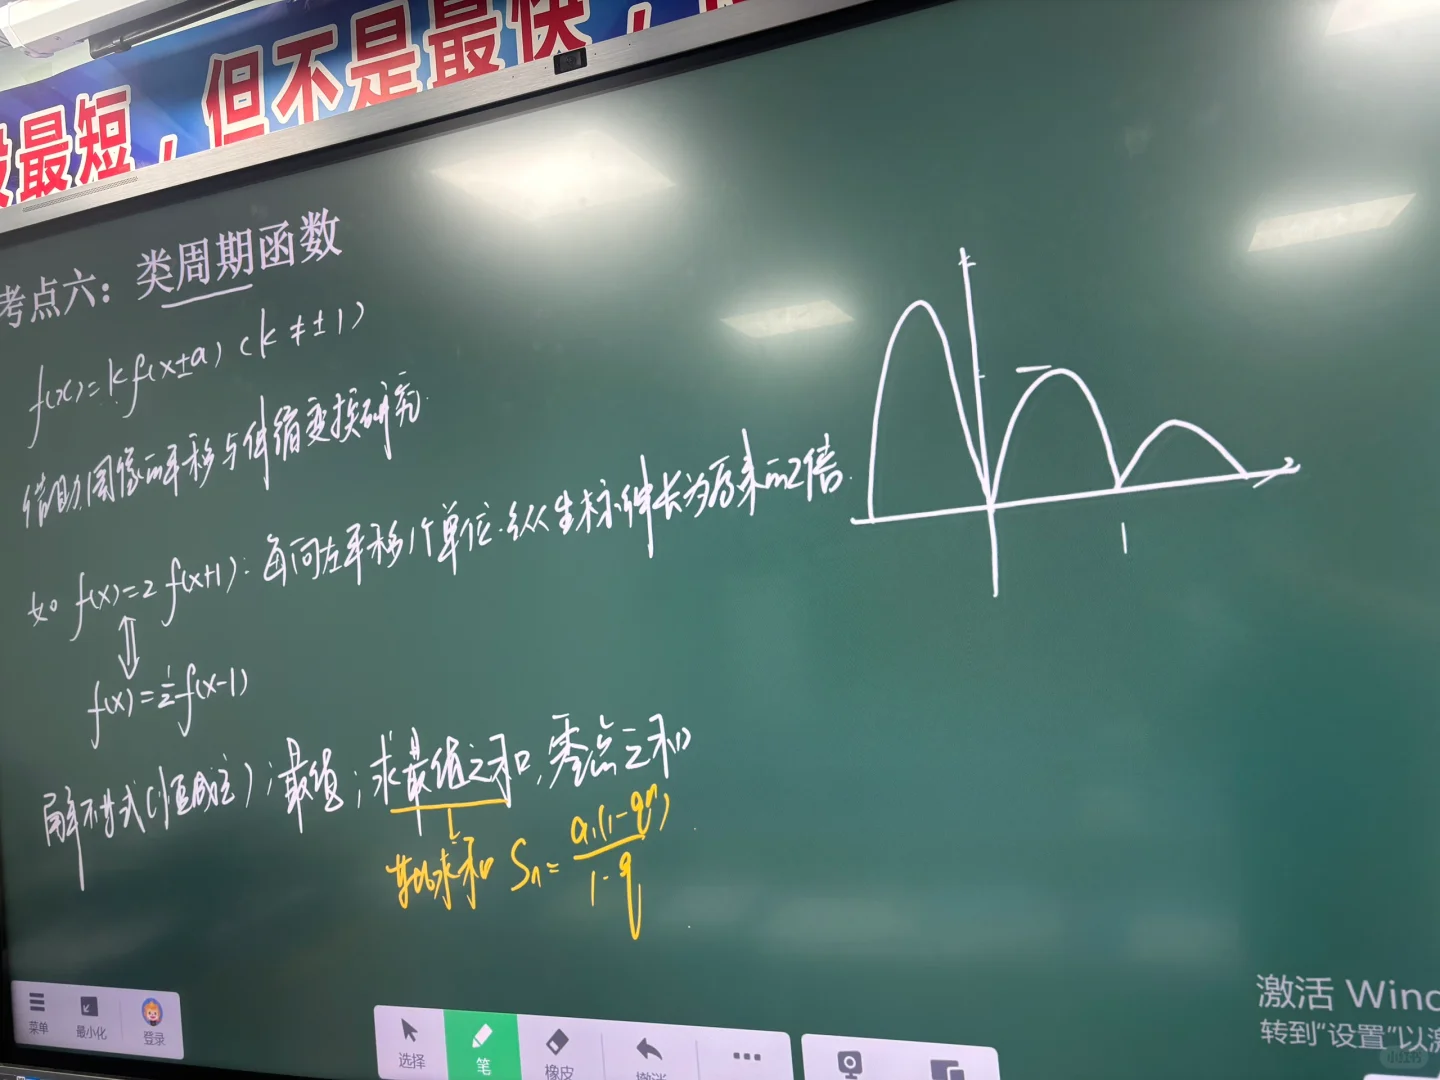 段最短，但不是最快，
考点六：类周期函数
f(x)=kf(x±a) (k≠±1)
借助图像的平移与伸缩变换研究.
如 f(x)=2f(x+1): 每向左平移1个单位.纵坐标伸长为原来的2倍.
⇕
f(x)=½f(x-1)
解不等式(恒成立);最值;求最值之和,零点之和
等比求和 Sn=a₁(1-qⁿ)/(1-q)
1
激活 Wind
转到“设置”以激
菜单
最小化
登录
选择
笔
橡皮
撤消
小红书